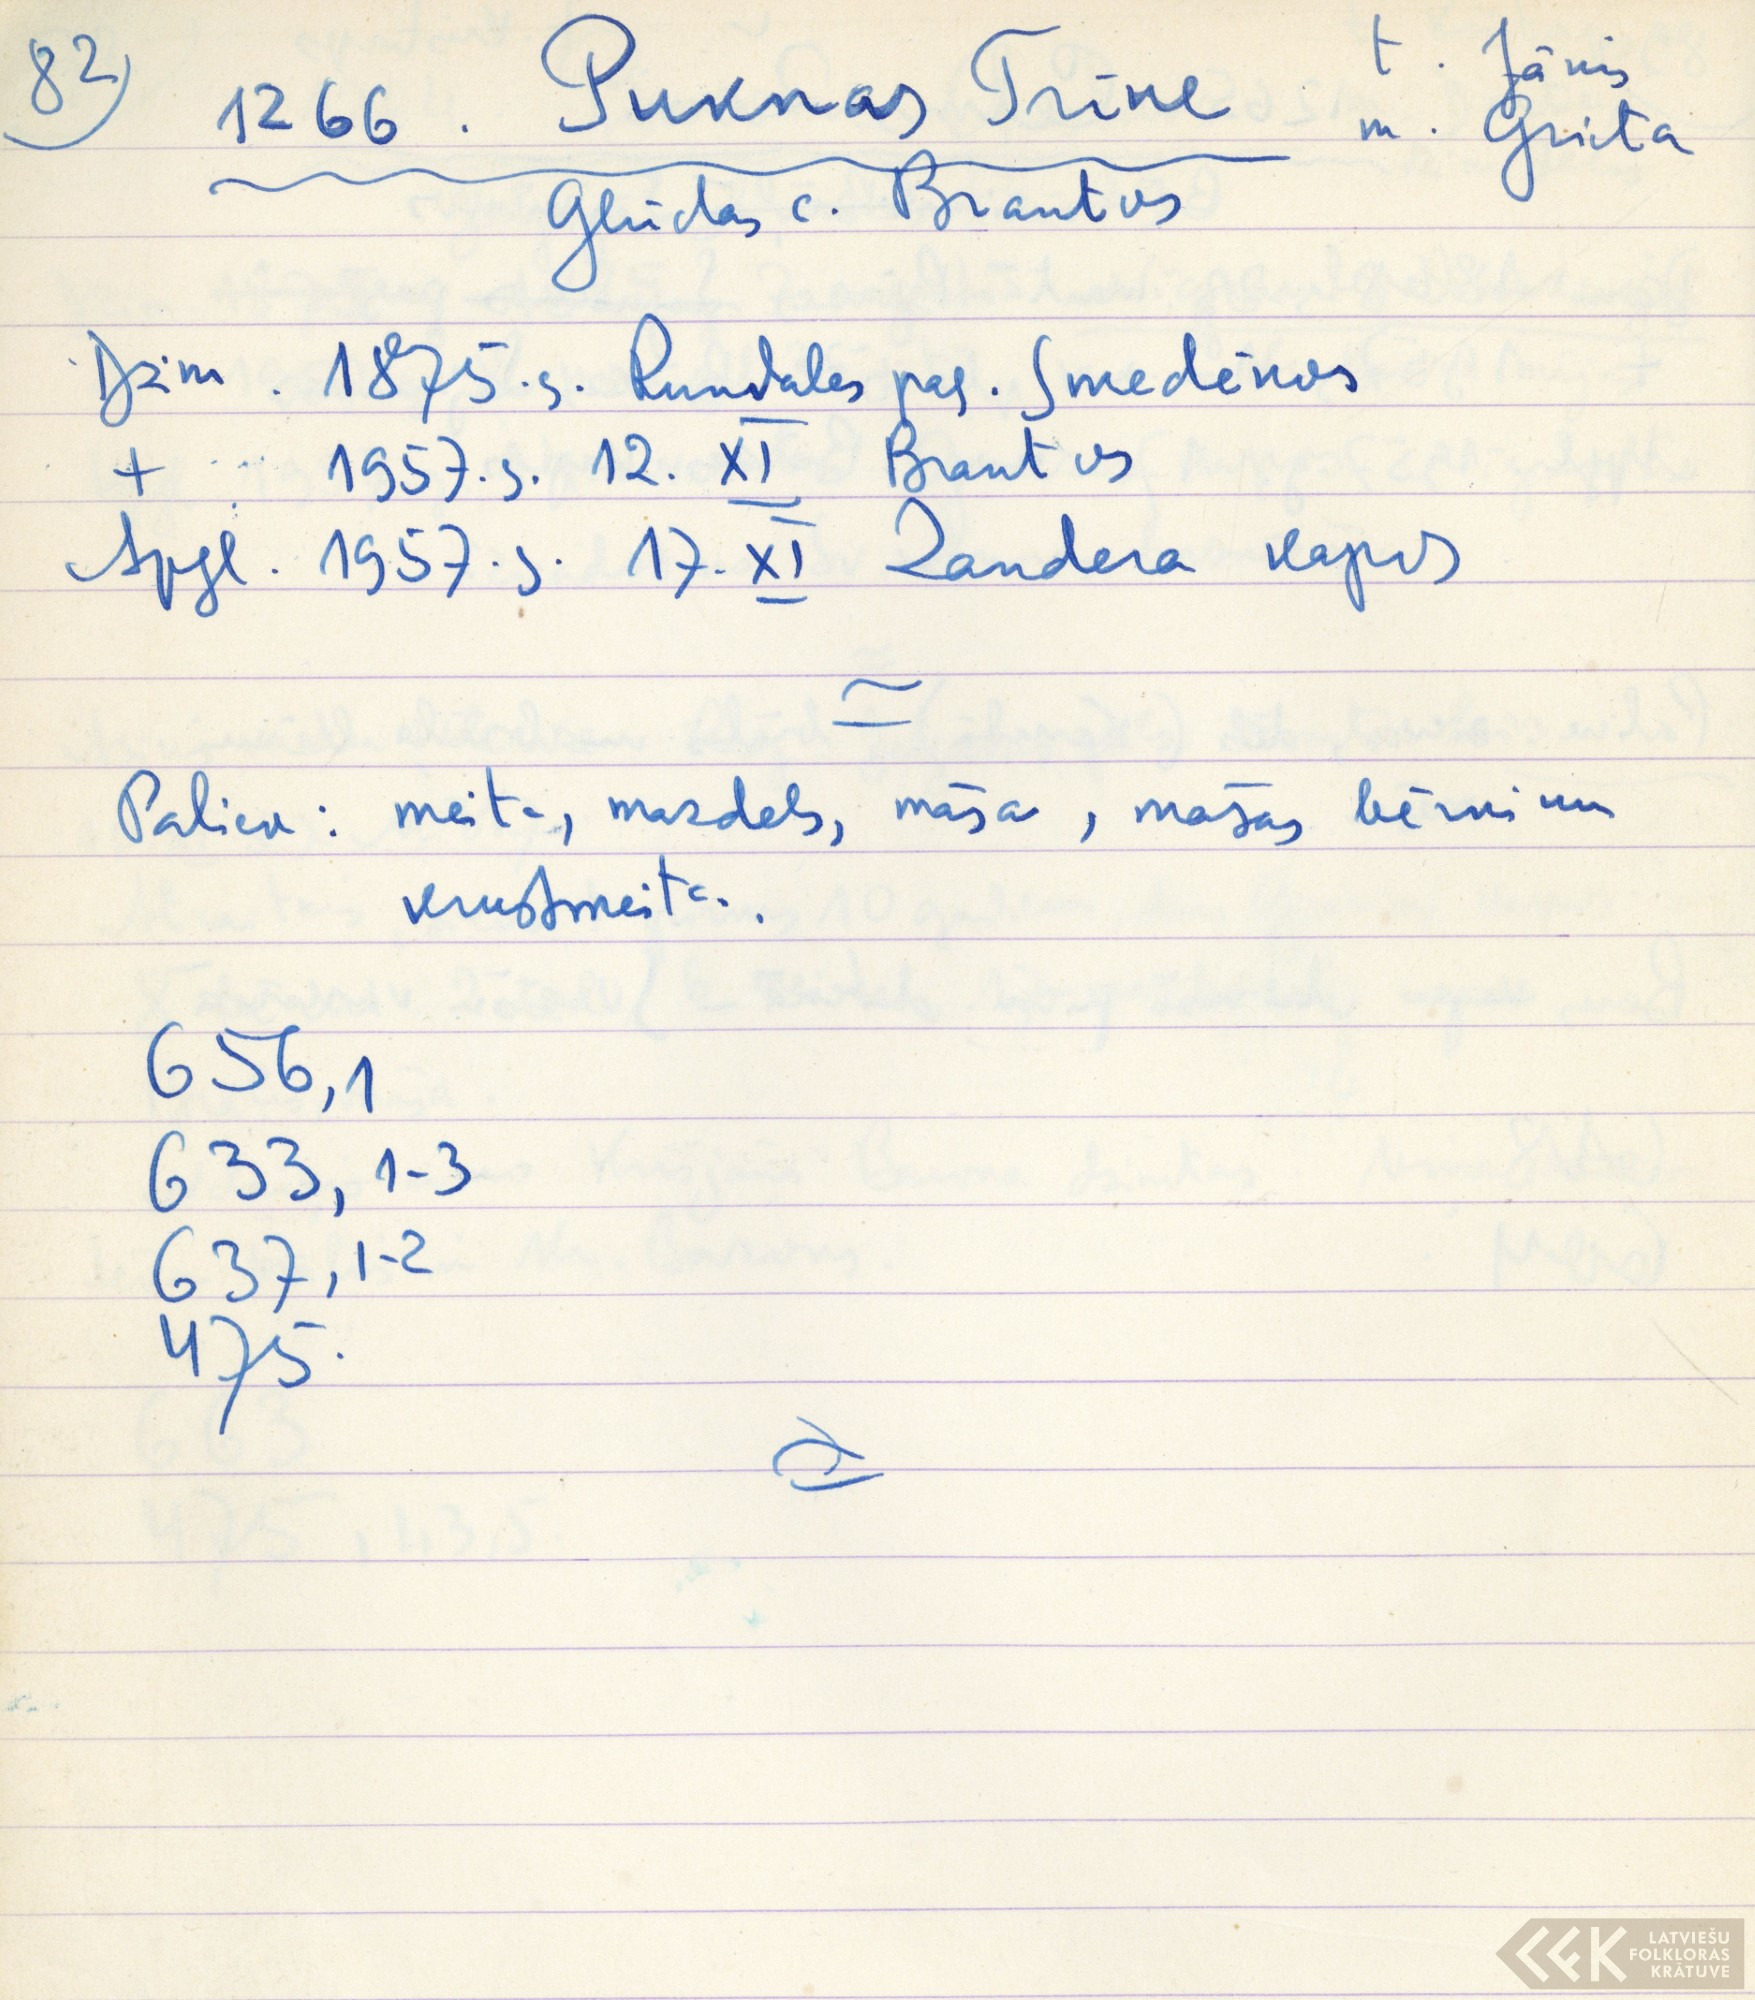 82)
1266. Puknas Trīne t. Jānis
m. Grieta
Glūdas c. Brantos
Dzim. 1875.g. Rundales pag. Smedēnos
+ 1957.g. 12. XI Brantos
Apgl. 1957.g. 17. XI Zandera kapos
Paliek: meita, mazdels, māsa, māsas bērni un
krustmeita.
656,1
633, 1-3
637, 1-2
475.
LATVIEŠU
FOLKLORAS
KRĀTUVE